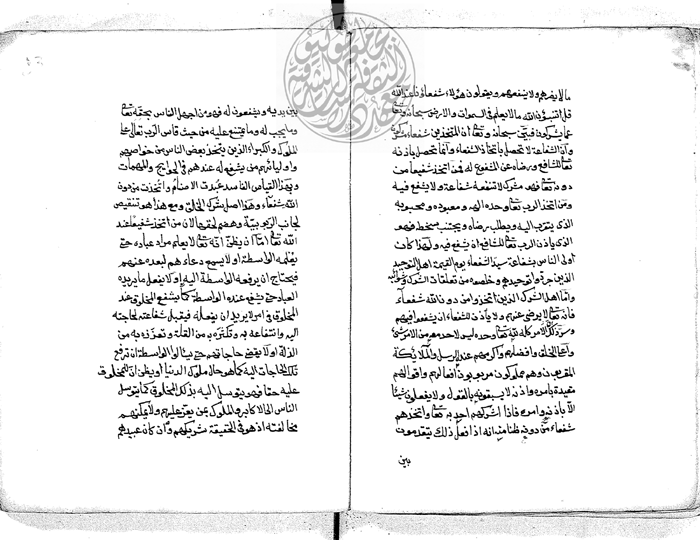 ما لا يضرهم ولا ينفعهم ويقولون هؤلاء شفعاؤنا عند الله
قل اتنبؤن الله بما لا يعلم في السموات ولا في الارض سبحانه وتعالى
عما يشركون فبين سبحانه وتعالى ان المتخذين شفعاء مشركون
وان الشفاعة لا تحصل باتخاذ الشفعاء وانما تحصل باذنه
تعالى للشافع ورضاه عن المشفوع له فمن اتخذ شفيعا من
دونه تعالى فهو مشرك لا تنفعه شفاعته ولا يشفع فيه
ومن اتخذ الرب تعالى وحده الهه ومعبوده ومحبوبه
الذي يتقرب اليه ويطلب رضاه ويجتنب سخطه فهو
الذي ياذن الرب تعالى للشافع ان يشفع فيه ولهذا كان
اولى الناس بشفاعة سيد الشفعاء يوم القيمة اهل التوحيد
الذين جردوا توحيدهم وخلصوه من تعلقات الشرك وشوائبه
واما اهل الشرك الذين اتخذوا من دون الله شفعاء
فانه تعالى لا يرضى عنهم ولا ياذن للشفعاء ان يشفعوا فيهم
وسر ذلك ان الامر كله لله تعالى وحده ليس لاحد معه من الامر شيء
واعلى الخلق وافضلهم واكرمهم عنده الرسل والملائكة
المقربون وهم مملوكون مربوبون افعالهم واقوالهم
مقيدة بامره واذنه لا يسبقونه بالقول ولا يفعلون شيئا
الا باذنه وامره فاذا اشركهم احد به تعالى واتخذهم
شفعاء من دونه ظنا منه انه اذا فعل ذلك يتقدمون
بين
بين يديه ويشفعون له فهو من اجهل الناس بحقه تعالى
وما يجب له وما يمتنع عليه من حيث قاس الرب تعالى على
الملوك والكبراء الذين يتخذ بعض الناس من خواصهم
واوليائهم من يشفع له عندهم في الحوايج والمهمات
وبهذا القياس الفاسد عبدت الاصنام واتخذت من دون
الله شفعاء وهذا اصل شرك الخلق ومع هذا هو تنقيص
لجانب الربوبية وهضم لحقها لان من اتخذ شفيعا عند
الله تعالى اما ان يظن انه تعالى لا يعلم مراد عباده حتى
يعلمه الواسطة او لا يسمع دعاءهم لبعده عنهم
فيحتاج ان يرفعه الواسطة اليه او لا يفعل ما يريده
العباد حتى يشفع عنده الواسطة كما يشفع المخلوق عند
المخلوق في امر لا يريد ان يفعله فيقبل شفاعته لحاجته
اليه وانتفاعه به وتكثره به من القلة وتعززه به من
الذلة او لا يقضي حاجاتهم حتى يسالوا الواسطة ان ترفع
تلك الحاجات اليه كما هو حال ملوك الدنيا او يظن ان للمخلوق
عليه حقا فهو يتوسل اليه بذلك المخلوق كما يتوسل
الناس الى الاكابر والملوك بمن يعز عليهم ولا يمكنهم
مخالفته اذ هو في الحقيقة شريكهم وان كان عبيدهم